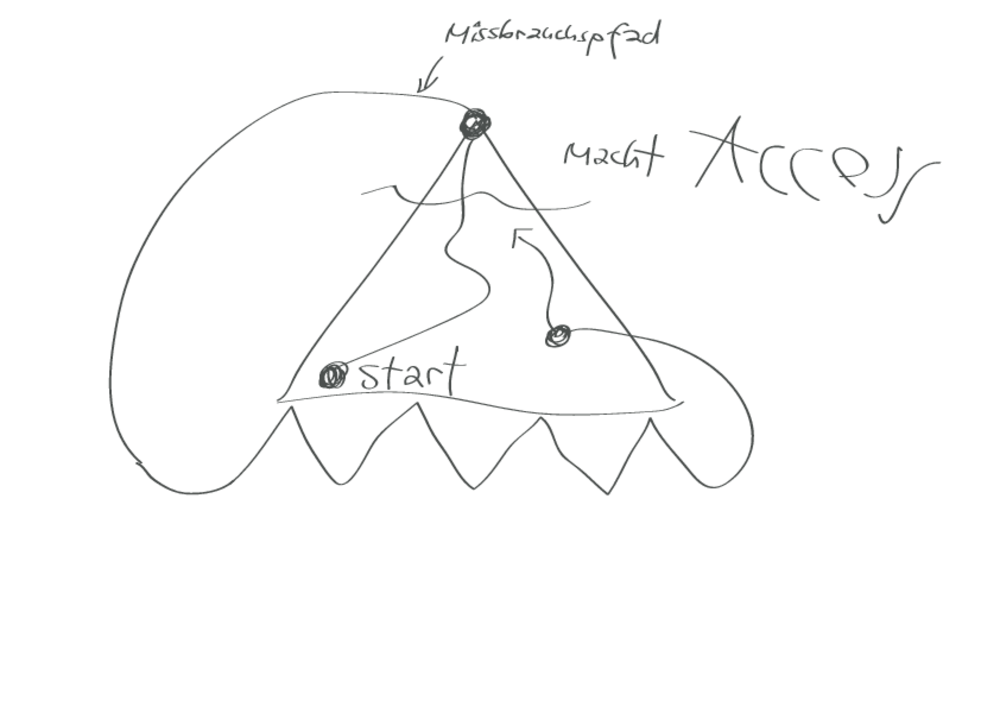 Missbrauchspfad
Macht Access
start